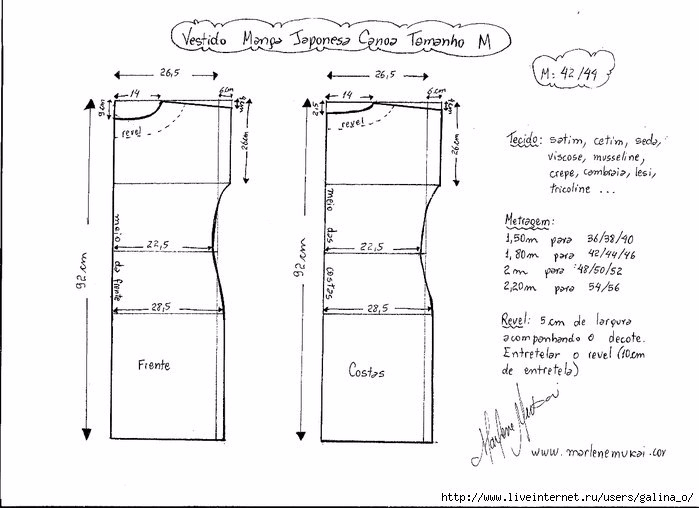 Vestido Manga Japonesa Canoa Tamanho M
M: 42/44
26,5
6cm
14
9cm
revel
26cm
92cm
meio da frente
22,5
28,5
Frente
26,5
6cm
14
2,5
revel
26cm
92cm
meio das costas
22,5
28,5
Costas
Tecido: satim, cetim, seda,
viscose, musseline,
crepe, cambraia, lesi,
tricoline ...
Metragem:
1,50m para 36/38/40
1,80m para 42/44/46
2m para 48/50/52
2,20m para 54/56
Revel: 5cm de largura
acompanhando o decote.
Entretelar o revel (10cm
de entretela)
Marlene Mukai
www.marlenemukai.com
http://www.liveinternet.ru/users/galina_o/